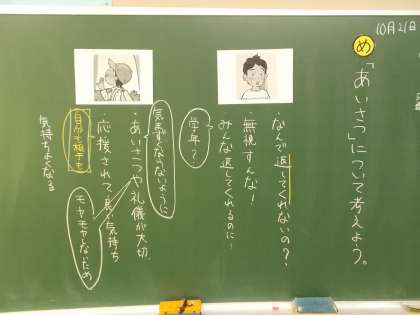 10月21日
め
「あいさつ」について考えよう。
・なんで返してくれないの？
・無視すんな！
みんな返してくれるのに！
学年？
気まずくならないように
・あいさつや礼儀が大切。
・応援されて良い気持ち
モヤモヤとしないため
自分も相手も
気持ちよくなる